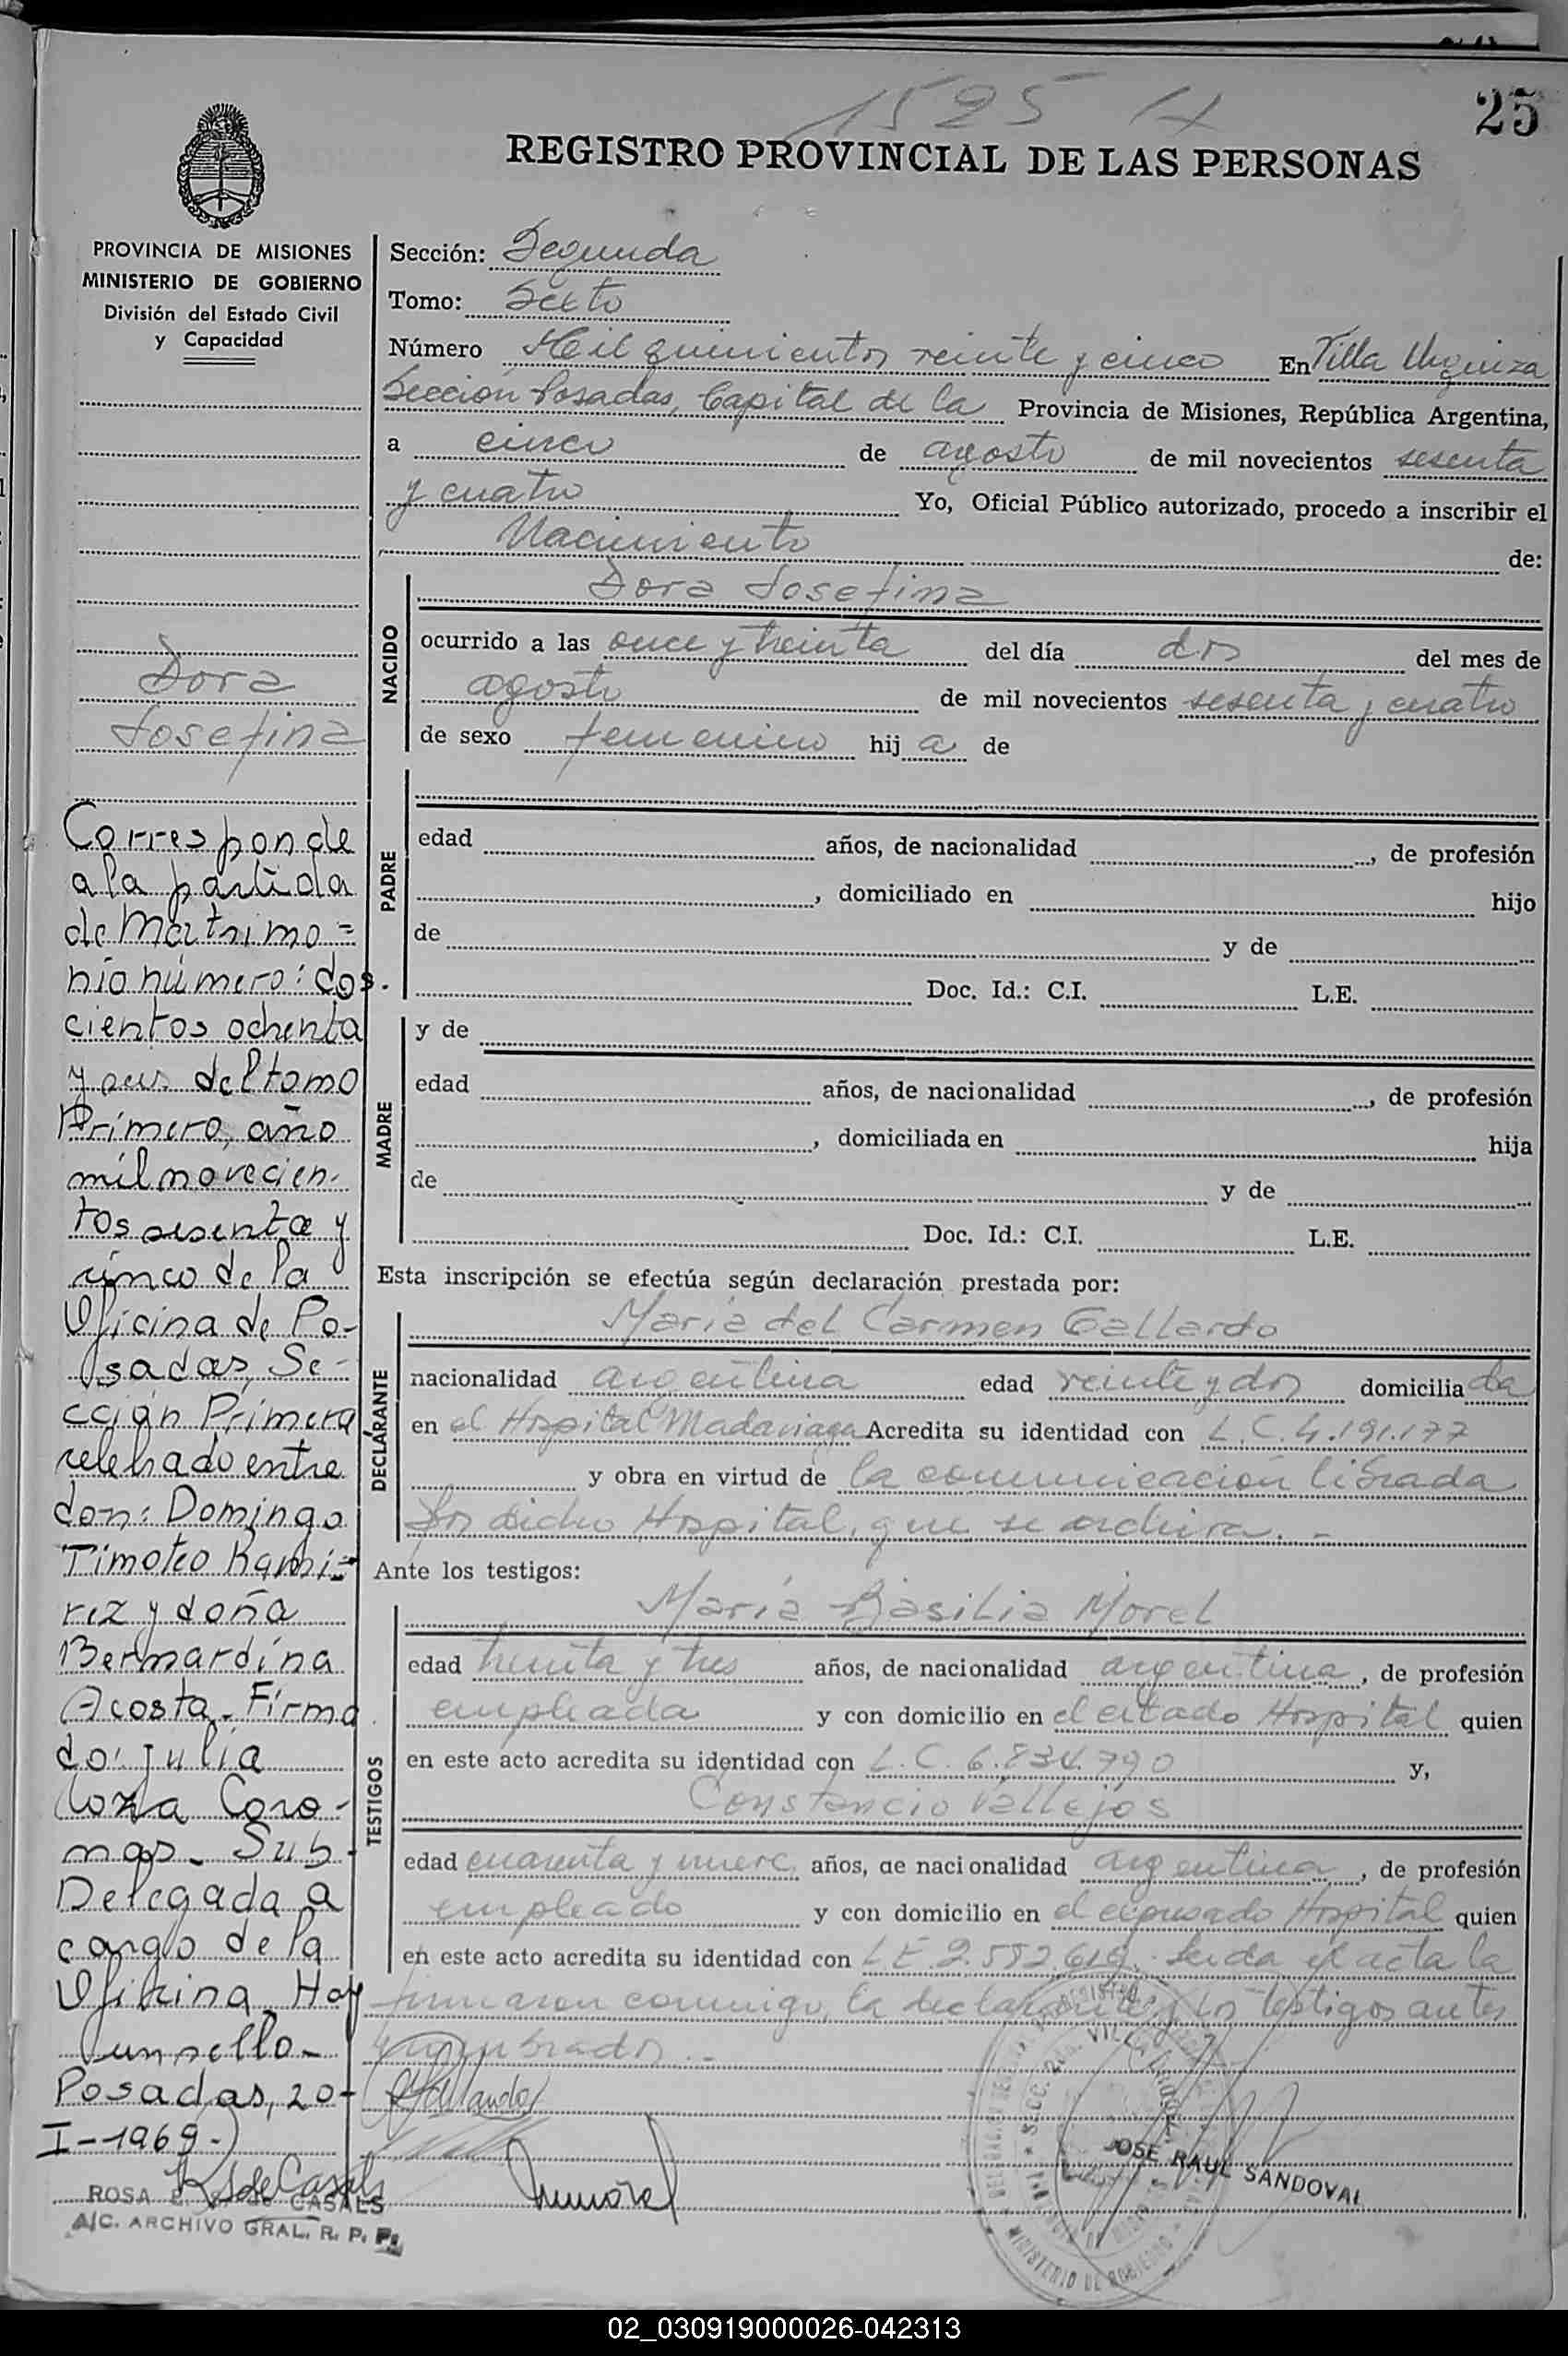 1525 H
25
REGISTRO PROVINCIAL DE LAS PERSONAS
PROVINCIA DE MISIONES
MINISTERIO DE GOBIERNO
División del Estado Civil
y Capacidad
Sección: Segunda
Tomo: Sexto
Número Mil quinientos veinte y cinco En Villa Urquiza
Sección Posadas, Capital de la Provincia de Misiones, República Argentina,
a cinco de agosto de mil novecientos sesenta
y cuatro Yo, Oficial Público autorizado, procedo a inscribir el
Nacimiento de:
NACIDO
Dora Josefina
ocurrido a las once y treinta del día dos del mes de
agosto de mil novecientos sesenta y cuatro
de sexo femenino hija de
PADRE
edad años, de nacionalidad , de profesión
, domiciliado en hijo
de y de
Doc. Id.: C.I. L.E.
MADRE
y de
edad años, de nacionalidad , de profesión
, domiciliada en hija
de y de
Doc. Id.: C.I. L.E.
Esta inscripción se efectúa según declaración prestada por:
DECLARANTE
María del Carmen Gallardo
nacionalidad argentina edad veinte y dos domiciliada
en el Hospital Madariaga Acredita su identidad con L.C. 4.191.177
y obra en virtud de la comunicación librada
por dicho Hospital, que se archiva. -
Ante los testigos:
TESTIGOS
María Basilia Morel
edad treinta y tres años, de nacionalidad argentina, de profesión
empleada y con domicilio en el citado Hospital quien
en este acto acredita su identidad con L.C. 6.834.790 y,
Constancio Vallejos
edad cuarenta y nueve años, de nacionalidad argentina, de profesión
empleado y con domicilio en el expresado Hospital quien
en este acto acredita su identidad con L.E. 2.552.619. Leida el acta la
firmaron conmigo, la declarante y los testigos antes
nombrados. -
JOSE RAUL SANDOVAL
MINISTERIO DE GOBIERNO
Dora
Josefina
Corresponde
a la partida
de Matrimo=
nio número: dos.
cientos ochenta
y seis del tomo
Primero, año
mil novecien-
tos sesenta y
cinco de la
Oficina de Po-
sadas, Se-
cción Primera
celebrado entre
don: Domingo
Timoteo Rami=
rez y doña
Bernardina
Acosta. Firma
do: Julia
Coro-
nas. Sub-
Delegada a
cargo de la
Oficina. Hay
un sello.
Posadas, 20-
I-1969.
ROSA CASALS
A/C. ARCHIVO GRAL. R. P. P.
02_030919000026-042313